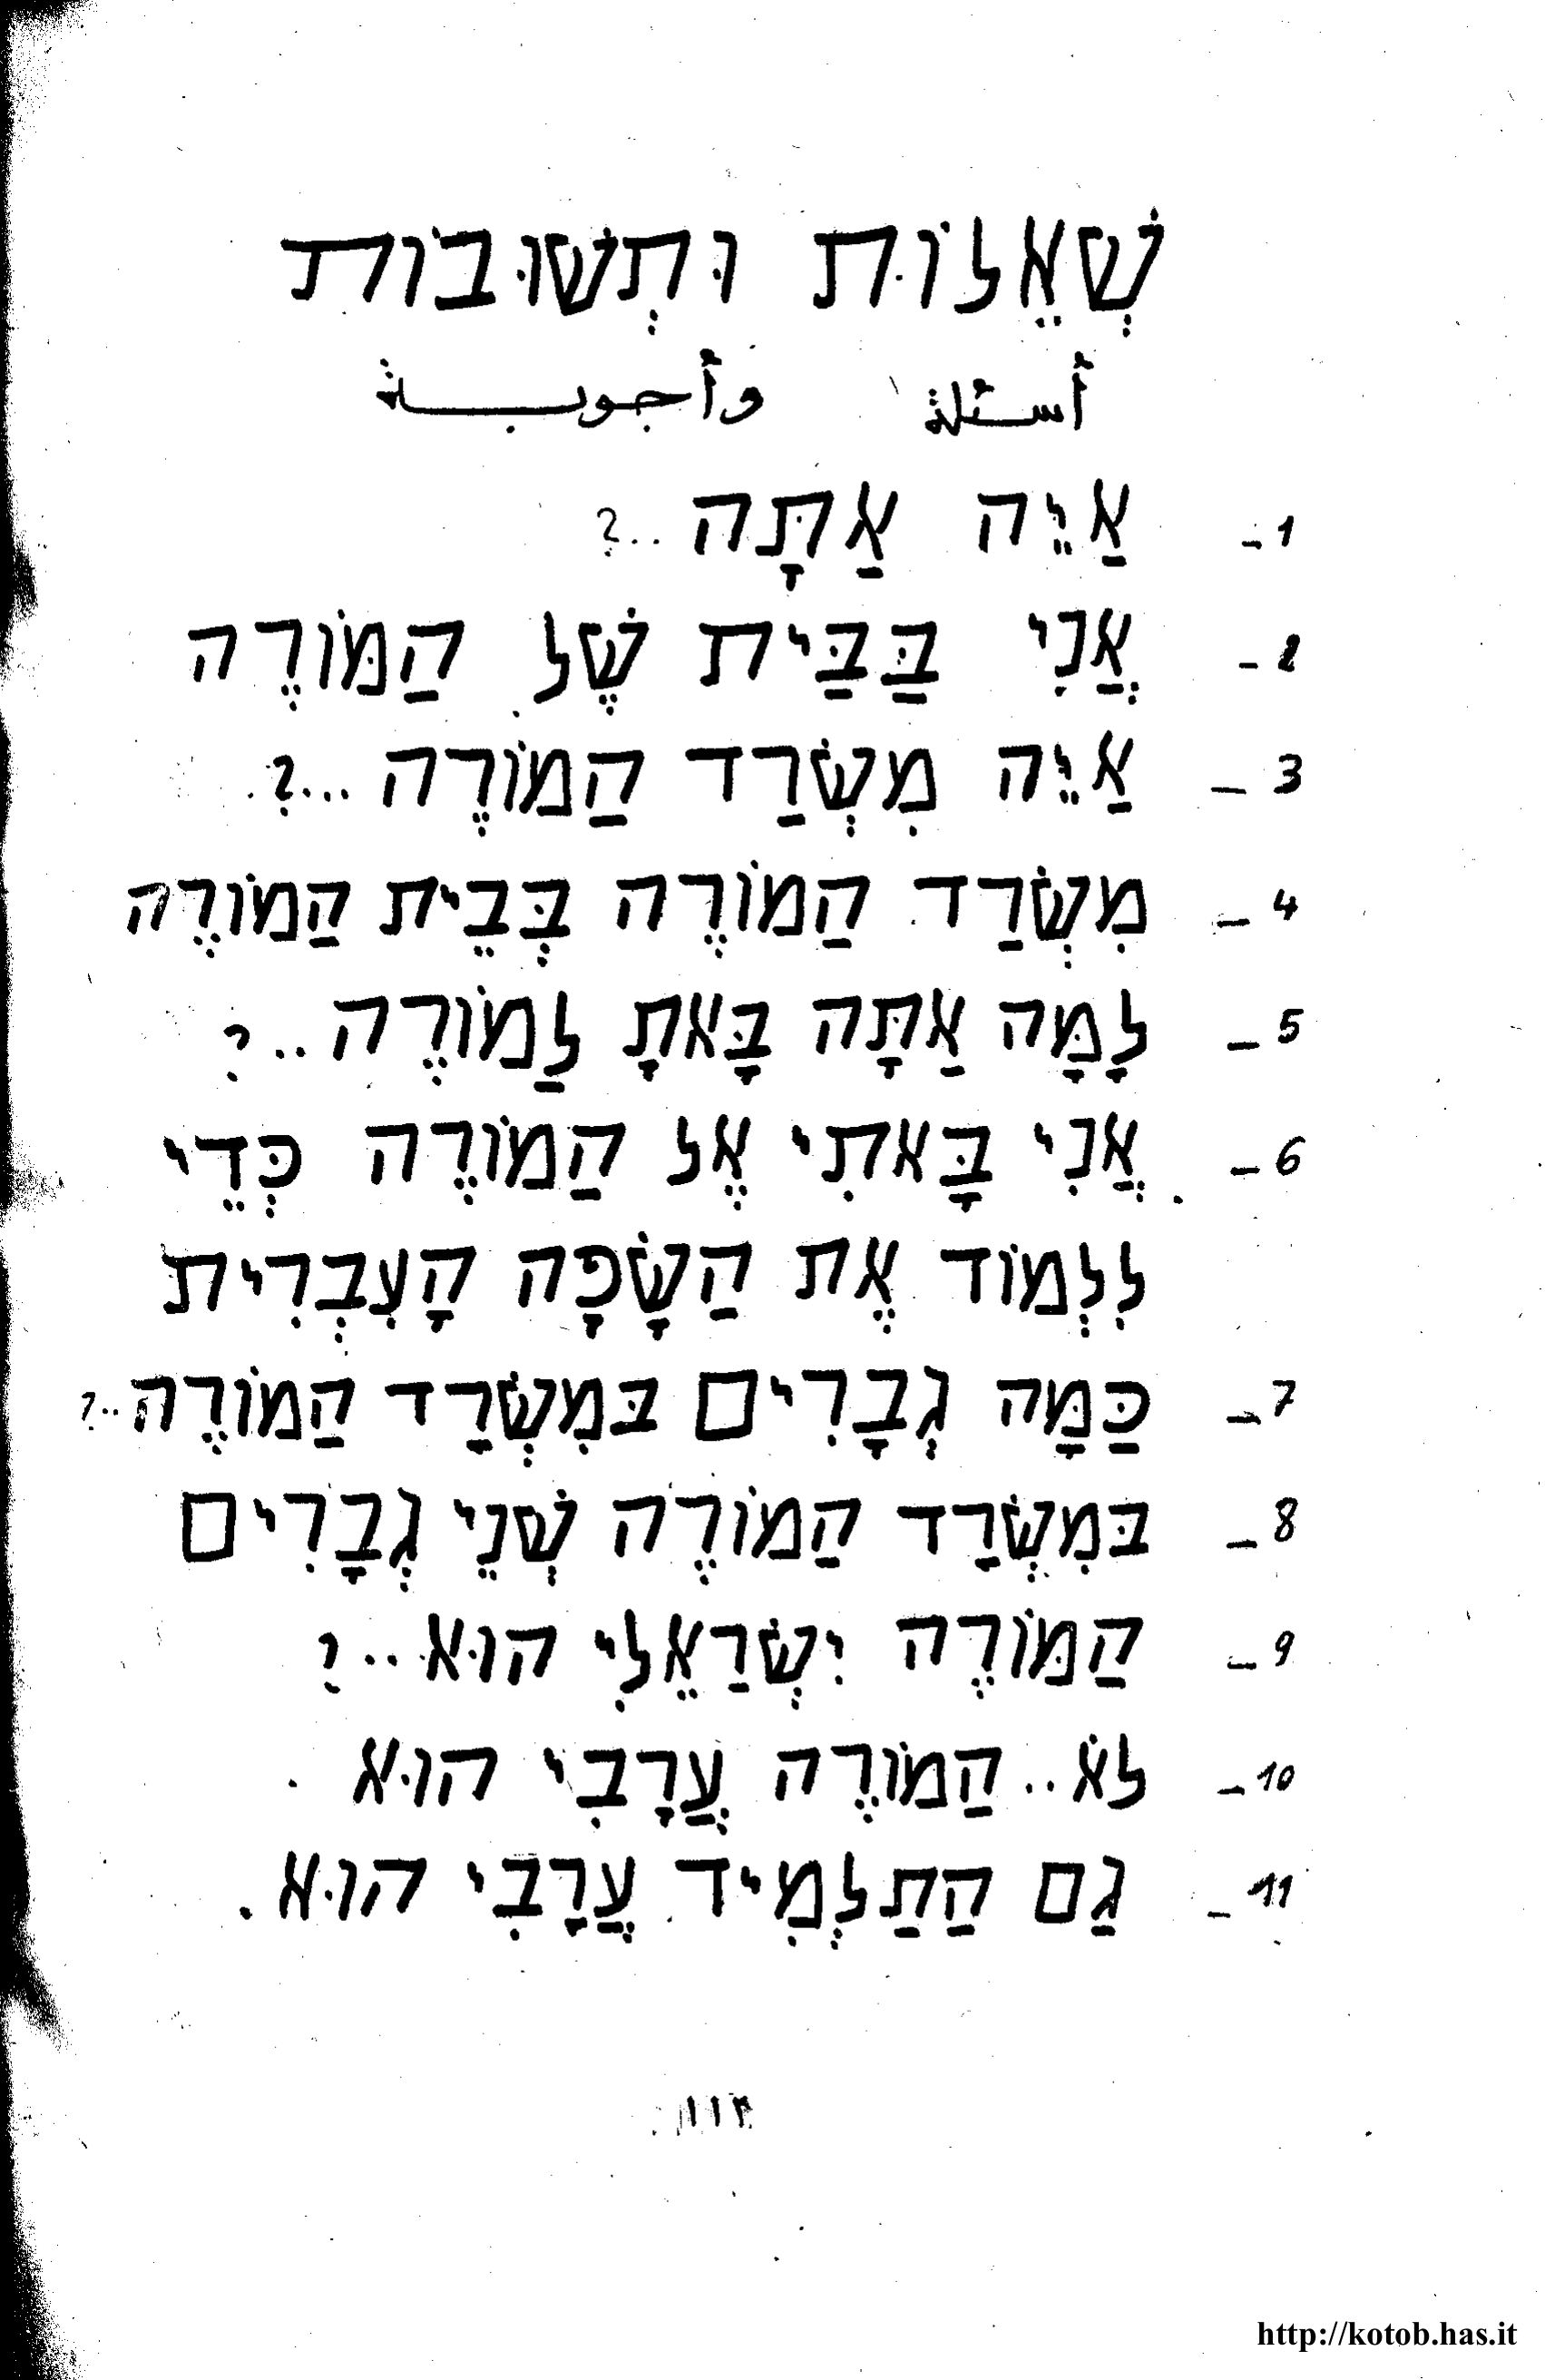 שְׁאֵלוֹת וּתְשׁוּבוֹת
أسئلة وأجوبة
1- אַיֵּה אַתָּה ..?
2- אֲנִי בַּבַּיִת שֶׁל הַמּוֹרֶה
3- אַיֵּה מִשְׂרַד הַמוֹרֶה ...?
4- מִשְׂרַד הַמוֹרֶה בְּבֵית הַמוֹרֶה
5- לָמָּה אַתָּה בָּאתָ לַמוֹרֶה ..?
6- אֲנִי בָּאתִי אֶל הַמוֹרֶה כְּדֵי
לִלְמוֹד אֶת הַשָׂפָה הָעִבְרִית
7- כַּמָּה גְבָרִים בּמִשְׂרַד הַמוֹרֶה ..?
8- בּמִשְׂרַד הַמוֹרֶה שְׁנֵי גְבָרִים
9- הַמּוֹרֶה יִשְׂרַאֵלִי הוּא ..?
10- לֹא .. הַמוֹרֶה עֲרָבִי הוּא .
11- גַם הַתַלְמִיד עֲרַבִי הוּא .
http://kotob.has.it